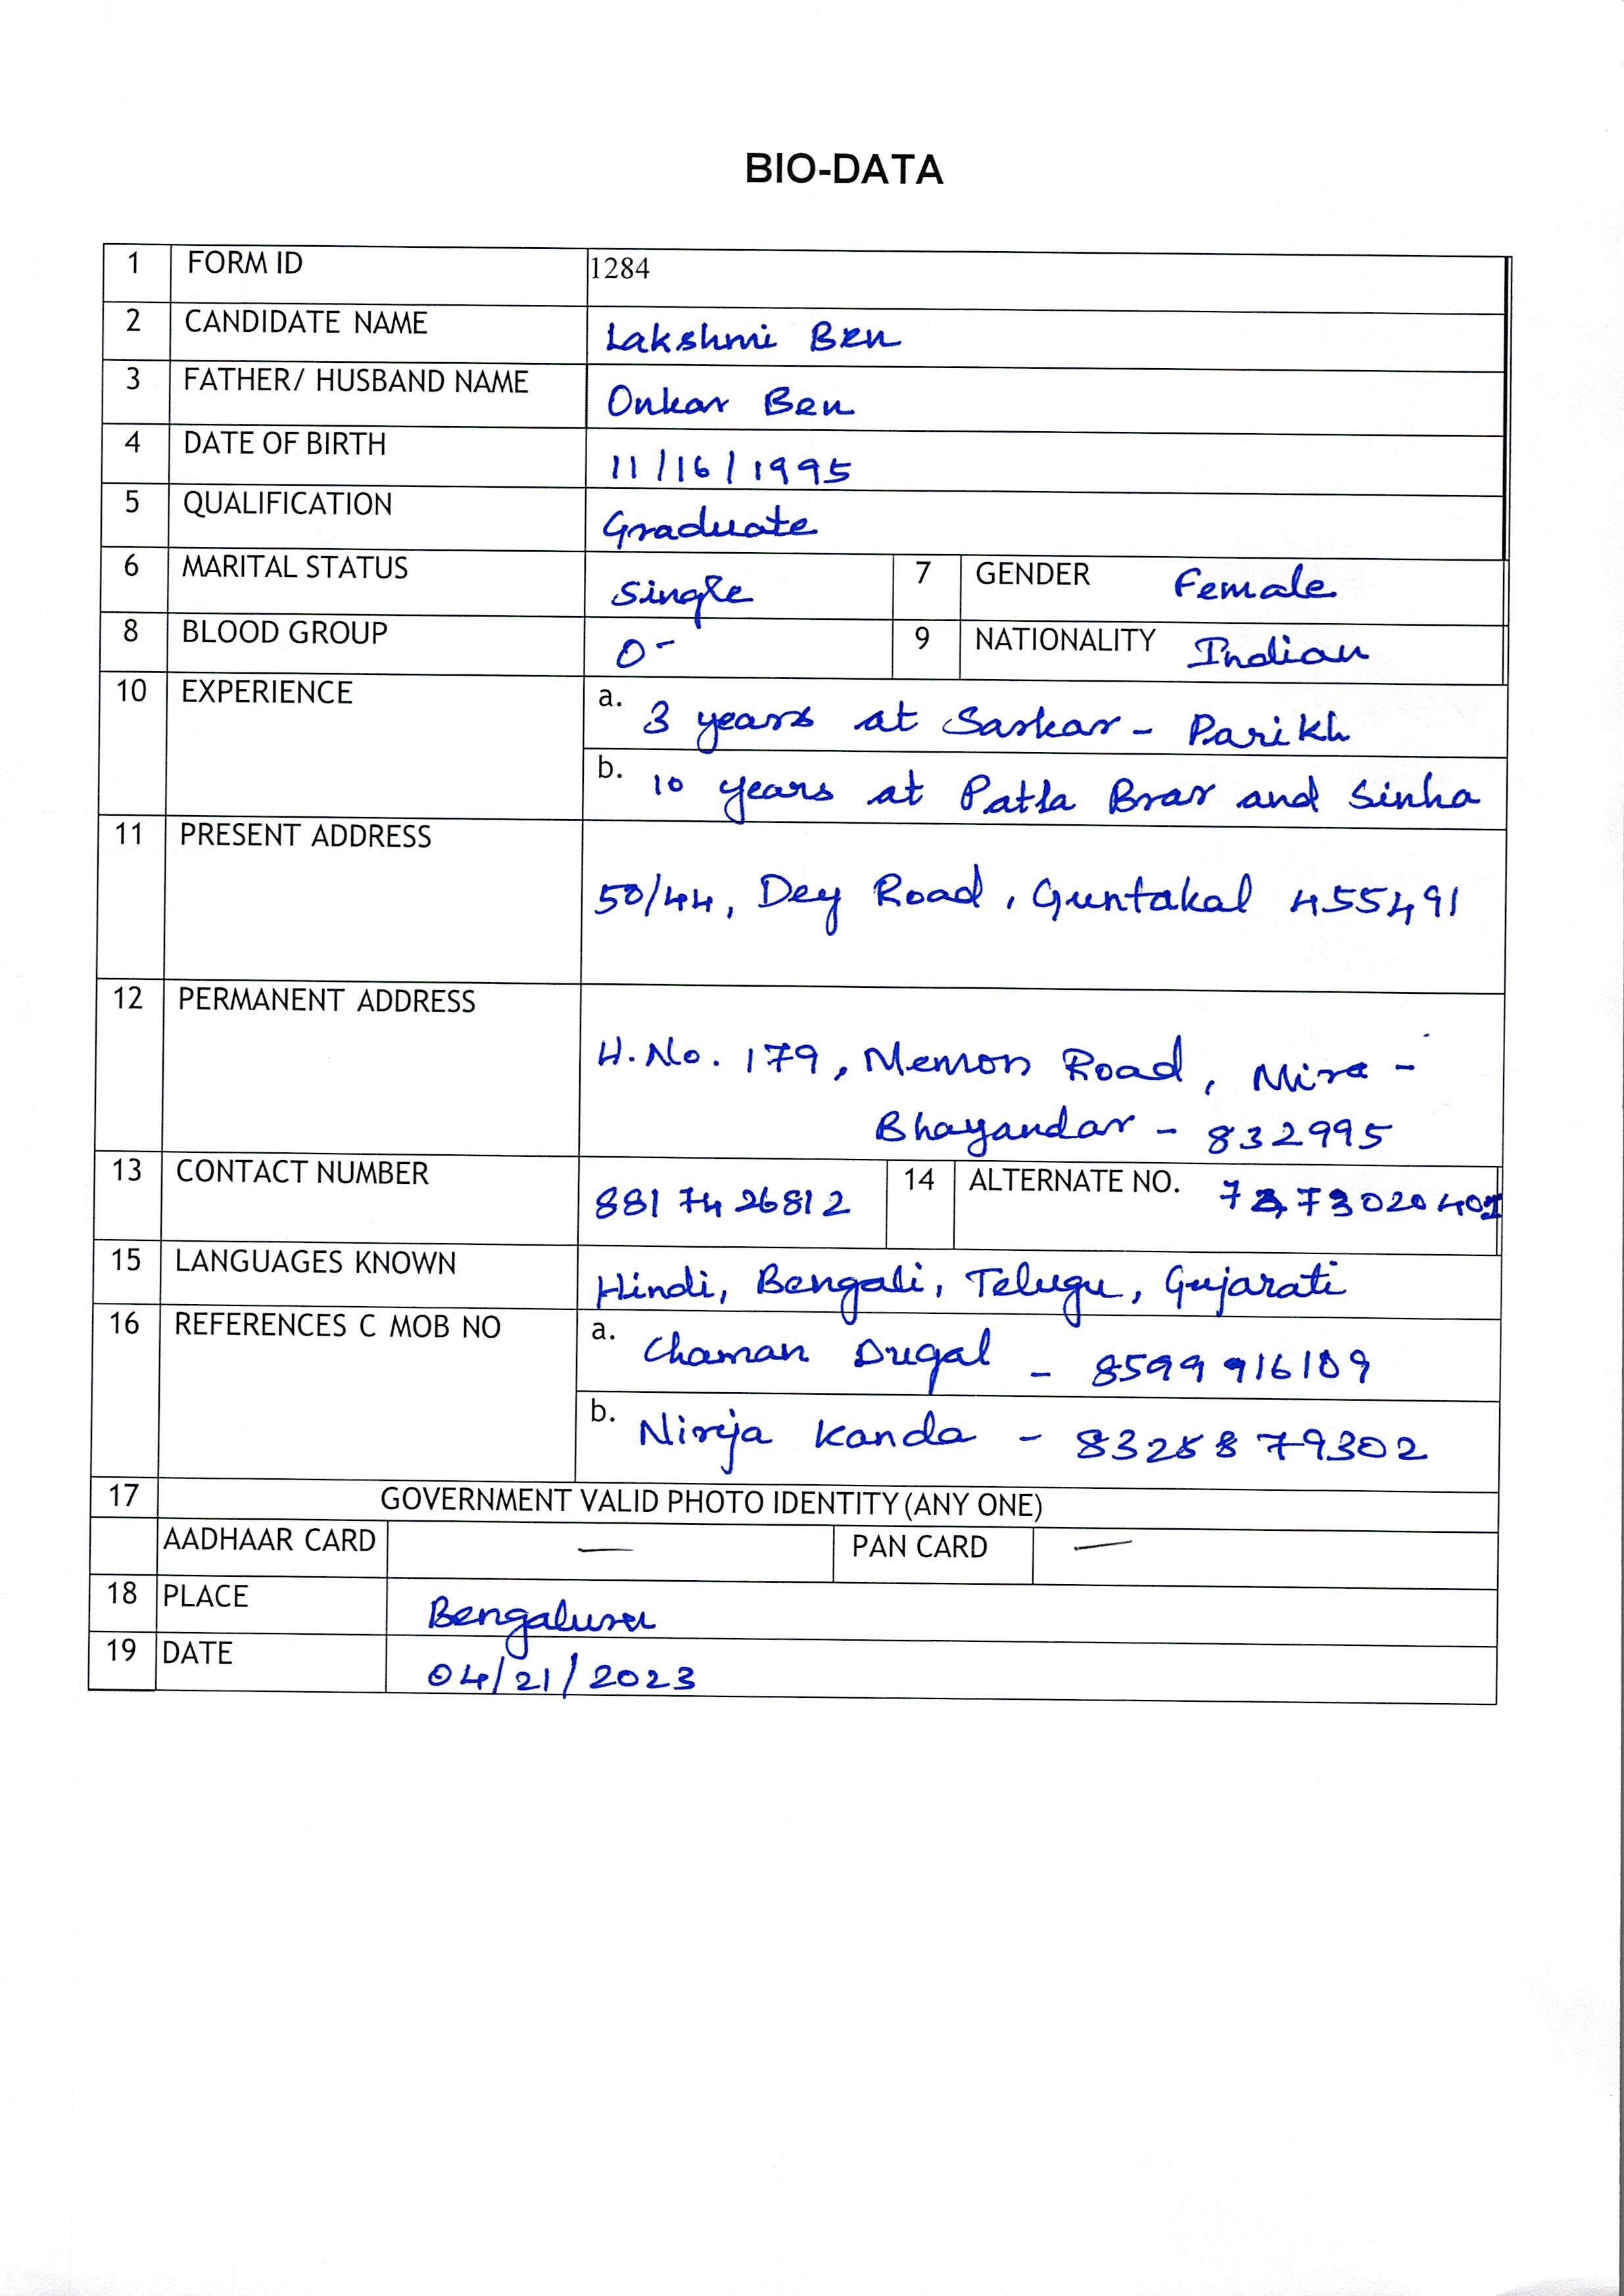 BIO-DATA
1 FORM ID 1284
2 CANDIDATE NAME Lakshmi Ben
3 FATHER/ HUSBAND NAME Onkar Ben
4 DATE OF BIRTH 11/16/1995
5 QUALIFICATION Graduate
6 MARITAL STATUS Single 7 GENDER Female
8 BLOOD GROUP O- 9 NATIONALITY Indian
10 EXPERIENCE a. 3 years at Sarkar - Parikh
b. 10 years at Patla Brar and Sinha
11 PRESENT ADDRESS
50/44, Dey Road, Guntakal 455491
12 PERMANENT ADDRESS
H.No. 179, Memon Road, Mira -
Bhayandar - 832995
13 CONTACT NUMBER 8817426812 14 ALTERNATE NO.
15 LANGUAGES KNOWN Hindi, Bengali, Telugu, Gujarati
16 REFERENCES C MOB NO a. Chaman Dugal - 8599916109
b. Nirija Kanda -
17 GOVERNMENT VALID PHOTO IDENTITY (ANY ONE)
AADHAAR CARD — PAN CARD —
18 PLACE Bengaluru
19 DATE 04/21/2023